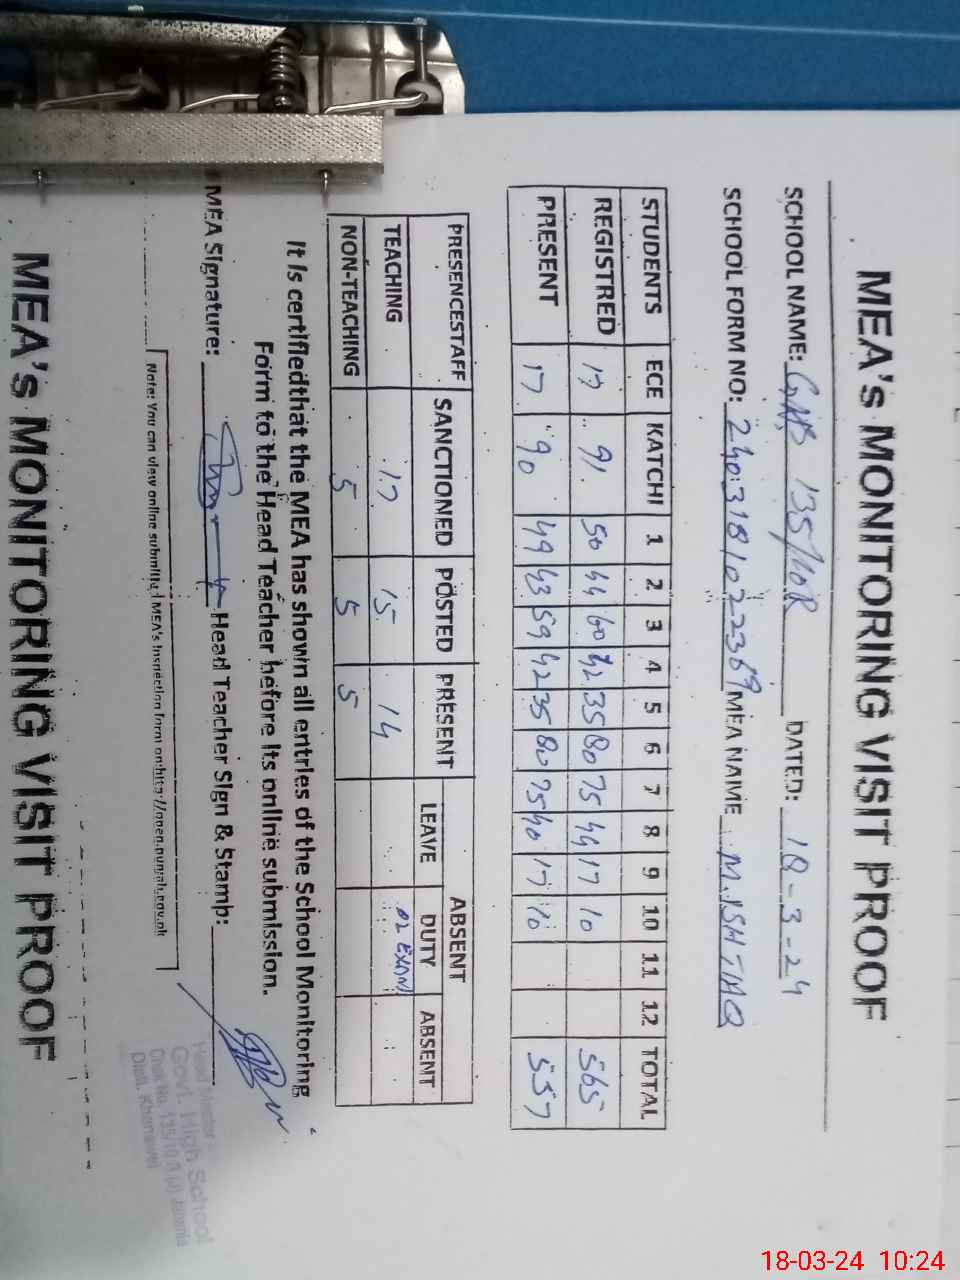 MEA's MONITORING VISIT PROOF
SCHOOL NAME: GHS 135/10R DATED: 18-3-24
SCHOOL FORM NO: 2403181022389 MEA NAME M.ISHTIAQ
STUDENTS ECE KATCHI 1 2 3 4 5 6 7 8 9 10 11 12 TOTAL
REGISTRED 17 91 50 44 60 42 35 80 75 44 17 10 565
PRESENT 17 90 49 43 59 42 35 80 75 40 17 10 557
PRESENCESTAFF SANCTIONED POSTED PRESENT ABSENT
LEAVE DUTY ABSENT
TEACHING 17 15 14 02 EXAM
NON-TEACHING 5 5 5
It is certifiedthat the MEA has shown all entries of the School Monitoring
Form to the Head Teacher before its online submission.
MEA Signature: Head Teacher Sign & Stamp:
Head Master
Govt. High School
Chak No. 135/10.R
Distt. Khanewal
Note: You can view online submitted MEA's Inspection form on:http://open.punjab.gov.pk
MEA's MONITORING VISIT PROOF
18-03-24 10:24